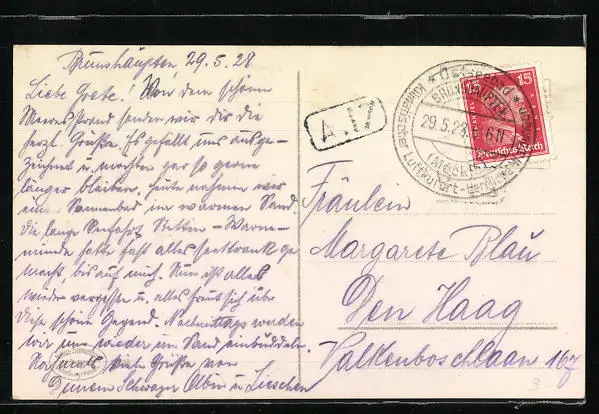 Brunshaupten 29.5.28
Liebe Grete! Von dem schönen
Meeresstrand senden wir dir die
herzl. Grüße. Es gefällt uns ausge-
zeichnet u. möchten gar so gerne
länger bleiben, heute nahmen wir
ein Sonnenbad im warmen Sand
die lange Seefahrt Stettin – Warne-
münde hatte fast alles seekrank ge
macht, bis auf mich. Nun ist alles
wieder vergessen u. alles freut sich über
diese schöne Gegend. Nachmittags werden
wir uns wieder im Sand einbuddeln.
viele Grüße von
Deinem Schwager Albin u. Lieschen
A.17
Ostseebad
BRUNSHAUPTEN
29.5.28. 6
(MECKL)
Klimatischer Luftkurort
15 15
Deutsches Reich
Fräulein
Margarete Blau
Den Haag
Valkenboschlaan 167
3.-